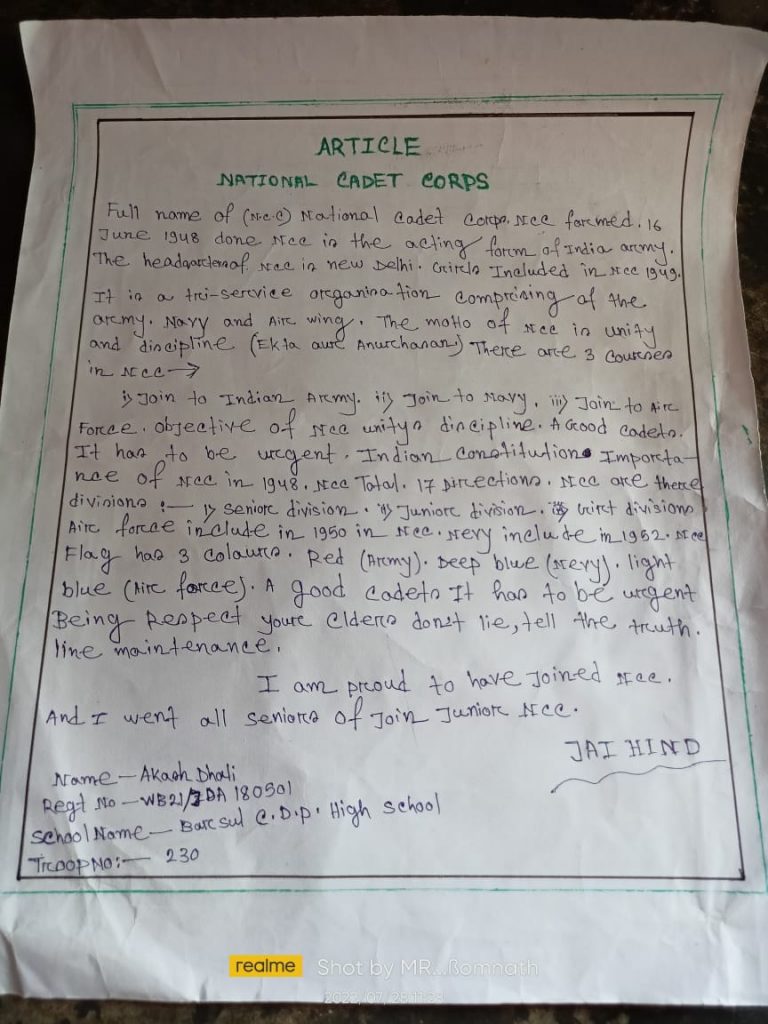 ARTICLE
NATIONAL CADET CORPS
Full name of (N.C.C) National Cadet Corps. NCC formed. 16
June 1948 done NCC is the acting form of India army.
The headqortersof NCC is new Delhi. Girls Included in NCC 1949.
It is a tri-service organisation comprising of the
army. Navy and Air wing. The motto of NCC is unity
and discipline (Ekta aur Anurchanan) There are 3 Courses
in NCC →
i) Join to Indian Army. ii) Join to Navy. iii) Join to Air
Force. objective of NCC unitys discipline. A Good cadets.
It has to be urgent. Indian Constitution Importa-
nce of NCC in 1948. NCC Total. 17 Directions. NCC are there
divisions :— i) Senior division. ii) Junior division. Girl divisions
Air force include in 1950 in NCC. Nevy include in 1952. NCC
Flag has 3 colours. Red (Army). Deep blue (Nevy). light
blue (Air force). A good cadets It has to be urgent
Being Respect your Elders don't lie, tell the truth.
line maintenance.
I am proud to have Joined NCC.
And I went all seniors of Join Junior NCC.
JAI HIND
Name — Akash Dhali
Regt No — WB21/JDA 180501
School Name — Barsul C.D.P. High School
Troop No:— 230
realme Shot by MR...ßomnath
2022/07/25 11:23